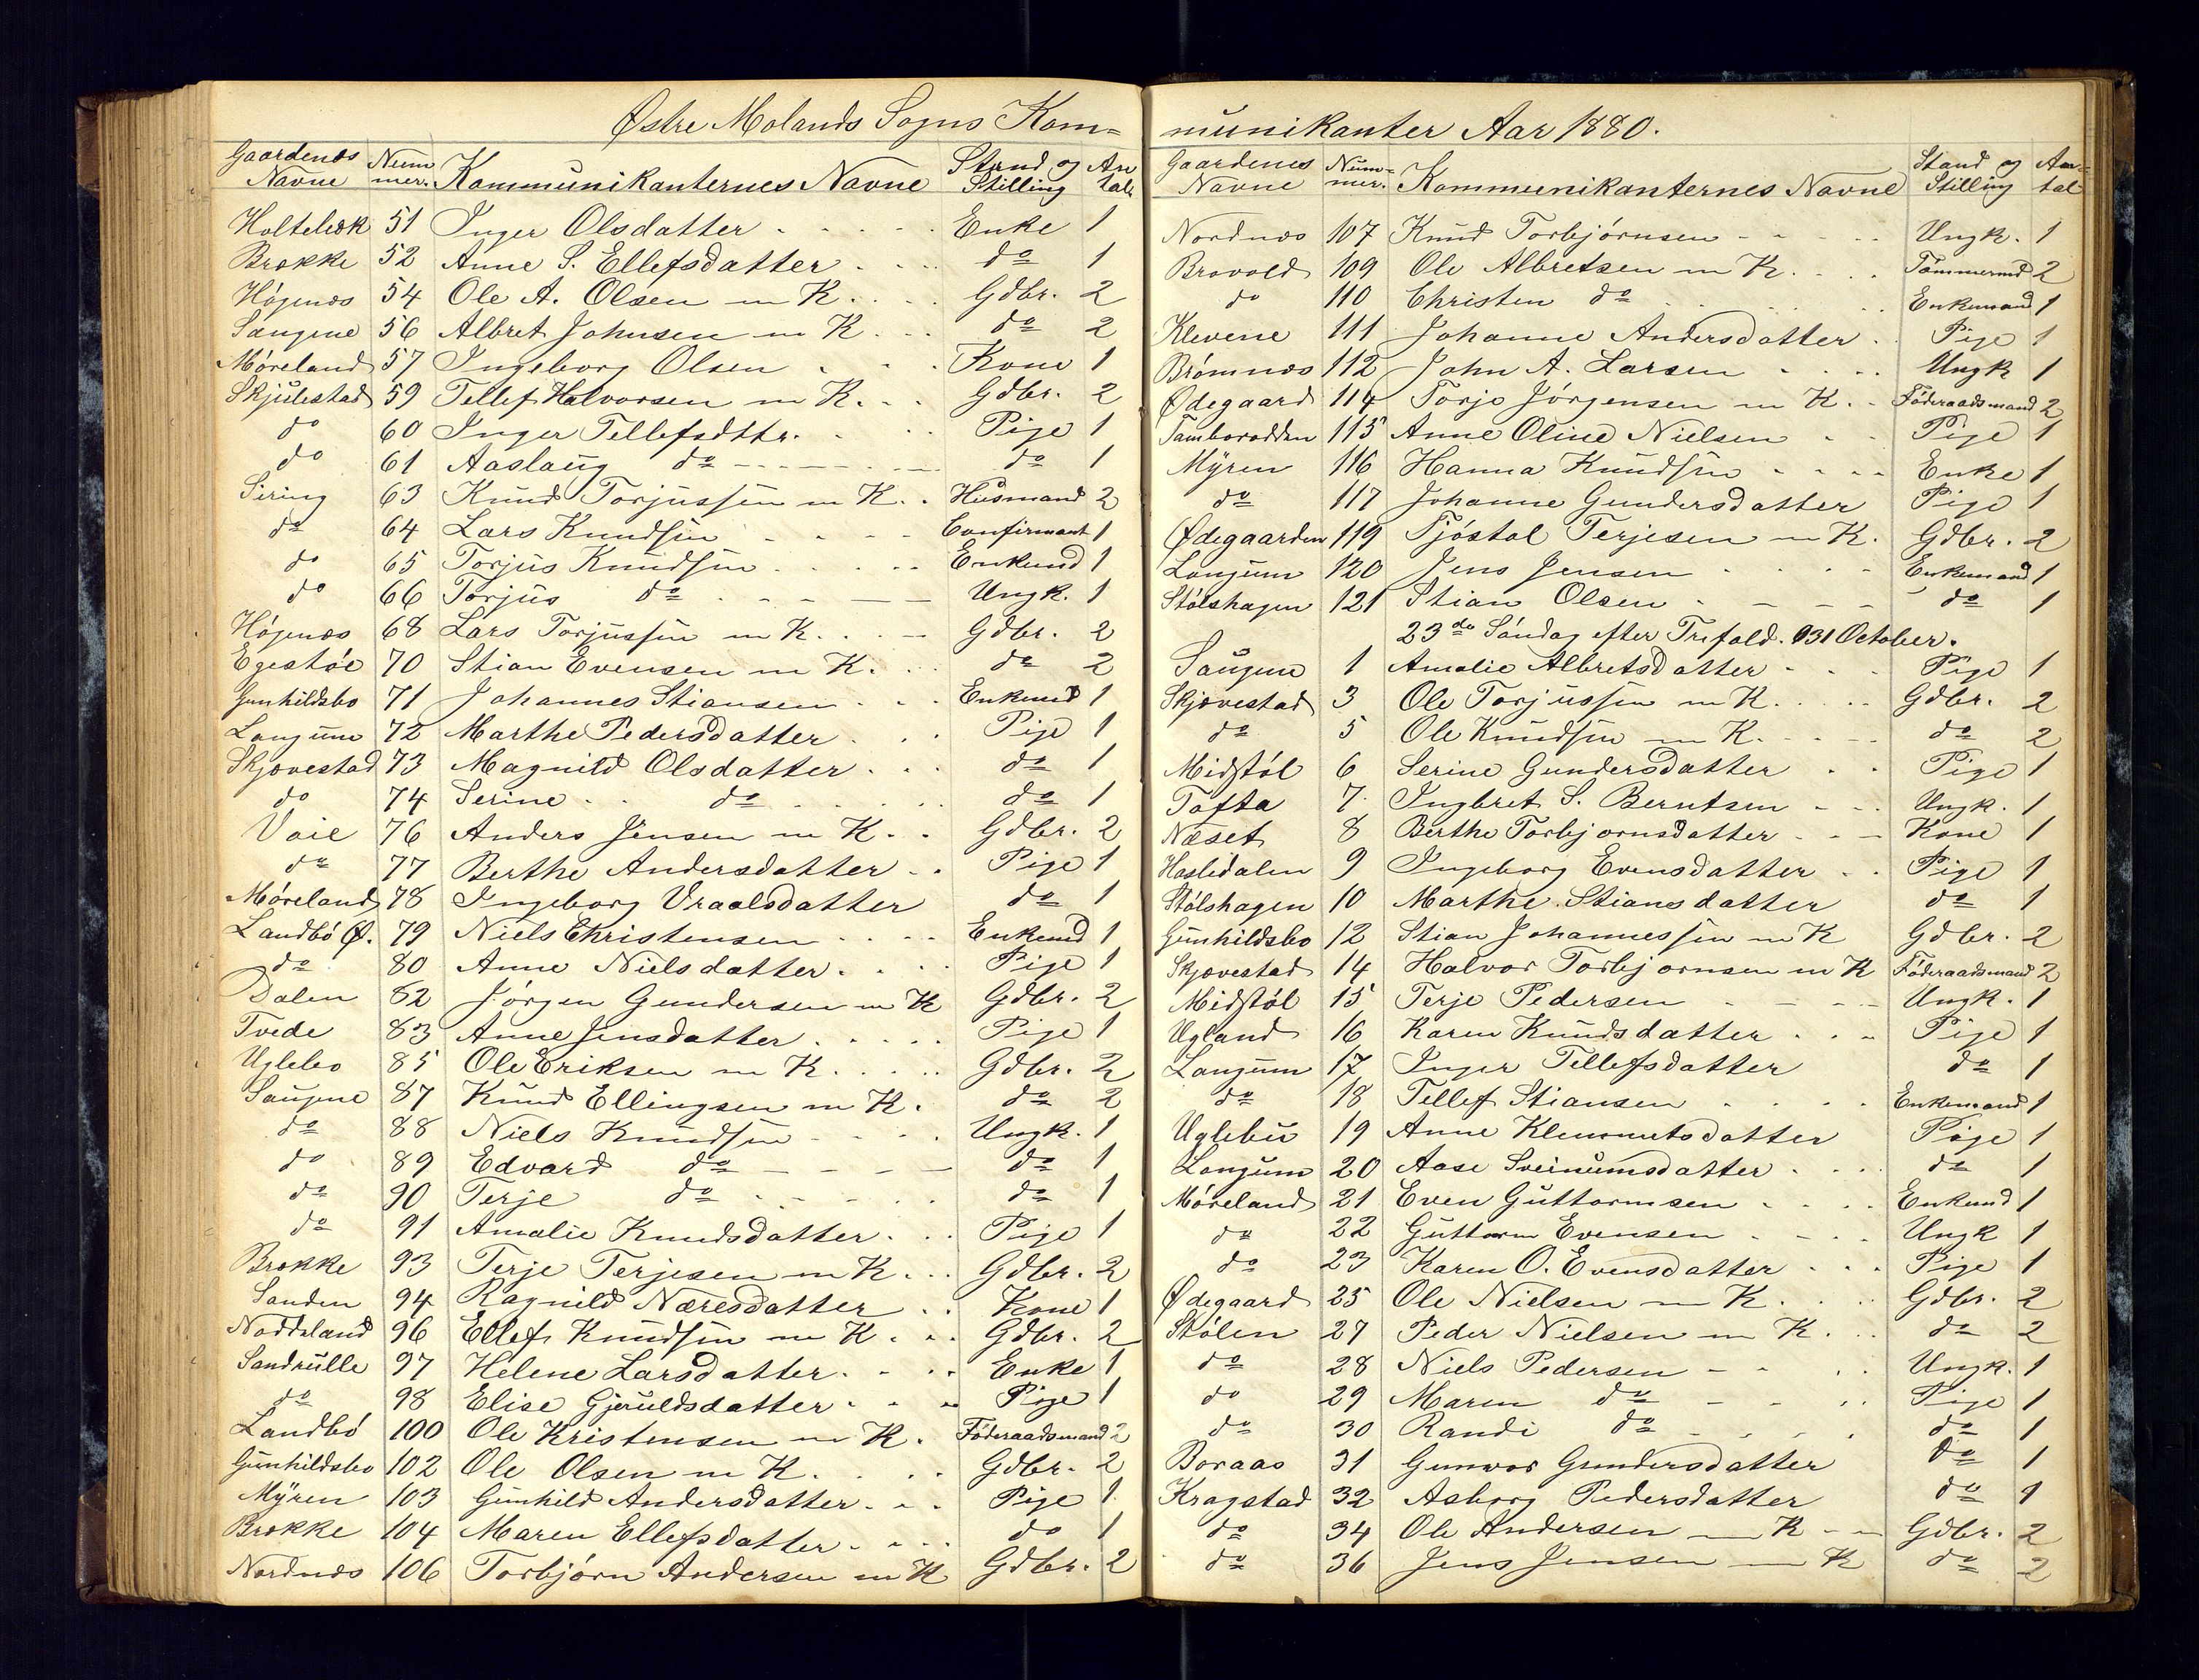 Østre Molands Sogns Kom=
Gaardenes Navne Num mer. Kommunikanternes Navne Stand og Stilling An tal.
Holtebæk 51 Inger Olsdatter Enke 1
Brække 52 Anne S. Ellefsdatter do 1
Høgenæs 54 Ole A. Olsen m K. Gdbr. 2
Saugene 56 Albret Johnsen m K do 2
Møreland 57 Ingeborg Olsen Kone 1
Skjulestad 59 Tellef Halvorsen m K. Gdbr. 2
do 60 Inger Tellefsdttr. Pige 1
do 61 Aaslaug do do 1
Siring 63 Knud Torjussen m K. Husmand 2
do 64 Lars Knudsen Confirmant 1
do 65 Torjus Knudsen Enkemd 1
do 66 Torjus do Ungk. 1
Høgenæs 68 Lars Torjussen m K. Gdbr. 2
Egestøl 70 Stian Evensen m K. do 2
Gunhildsbo 71 Johannes Stiansen Enkemd 1
Langum 72 Marthe Pedersdatter Pige 1
Skjævestad 73 Magnild Olsdatter do 1
do 74 Serine do do 1
Voie 76 Anders Jensen m K. Gdbr. 2
do 77 Berthe Andersdatter Pige 1
Møreland 78 Ingeborg Vraalsdatter do 1
Landbø Ø. 79 Niels Christensen Enkemd 1
do 80 Anne Nielsdatter. Pige 1
Dalen 82 Jørgen Gundersen m K Gdbr. 2
Tvede 83 Anne Jensdatter Pige 1
Uglebo 85 Ole Eriksen m K. Gdbr. 2
Saugene 87 Knud Ellingsen m K. do 2
do 88 Niels Knudsen Ungk. 1
do 89 Edvard do do 1
do 90 Terje do do 1
do 91 Amalie Knudsdatter. Pige 1
Brække 93 Terje Terjesen m K. Gdbr. 2
Sanden 94 Ragnild Næresdatter Kone 1
Noddeland 96 Ellef Knudsen m K. Gdbr. 2
Sandrulle 97 Helene Larsdatter. Enke 1
do 98 Elise Gjeruldsdatter Pige 1
Landbø 100 Ole Kristensen m K. Föderaadsmand 2
Gunhildsbo 102 Ole Olsen m K. Gdbr. 2
Myren 103 Gunhild Andersdatter. Pige 1
Brække 104 Maren Ellefsdatter. do 1
Nordnæs 106 Torbjørn Andersen m K Gdbr. 2
munikanter Aar 1880.
Gaardenes Navne Num= mer. Kommunikanternes Navne Stand og Stilling An= tal
Nordnæs 107 Knud Torbjørnsen Ungk. 1
Brovold 109 Ole Albretsen m K. Tømmermd 2
do 110 Christen do Enkemand 1
Klevene 111 Johanne Andersdatter Pige 1
Brømnæs 112 John A. Larsen Ungk 1
Ødegaard 114 Torjo Jørgensen m K. Föderaadsmand 2
Tamborodden 115 Anne Oline Nielsen Pige 1
Myren 116 Hanna Knudsen Enke 1
do 117 Johanne Gundersdatter Pige 1
Ødegaarden 119 Tjøstal Terjesen m K. Gdbr. 2
Langum 120 Jens Jensen Enkemand 1
Stølshagen 121 Stian Olsen do 1
23do Søndag efter Trefold. 31 October.
Saugene 1 Amalie Albretsdatter Pige 1
Skjævestad 3 Ole Torjussen m K. Gdbr. 2
do 5 Ole Knudsen m K. do 2
Midstøl 6 Serine Gundersdatter Pige 1
Tofta 7 Ingbret S. Berntsen Ungk. 1
Næset 8 Berthe Torbjornsdatter Kone 1
Hasledalen 9 Ingeborg Evensdatter Pige 1
Stølshagen 10 Marthe Stiansdatter do 1
Gunhildsbo 12 Stian Johannessen m K Gdbr. 2
Skjævestad 14 Halvor Torbjornsen m K Föderaadsmand 2
Midstøl 15 Terje Pedersen Ungk. 1
Ugland 16 Karen Knudsdatter Pige 1
Langum 17 Inger Tellefsdatter do 1
do 18 Tellef Stiansen Enkemand 1
Uglebu 19 Anne Klemmetsdatter Pige 1
Langum 20 Aase Sveinumsdatter do 1
Møreland 21 Even Guttormsen Enkemd 1
do 22 Guttorm Evensen Ungk 1
do 23 Karen O. Evensdatter Pige 1
Ødegaard 25 Ole Nielsen m K. Gdbr. 2
Stølen 27 Peder Nielsen m K. do 2
do 28 Niels Pedersen Ungk. 1
do 29 Maren do Pige 1
do 30 Randi do do 1
Boraas 31 Gunvor Gundersdatter do 1
Kragstad 32 Asborg Pedersdatter do 1
do 34 Ole Andersen m K Gdbr. 2
do 36 Jens Jensen m K do 2